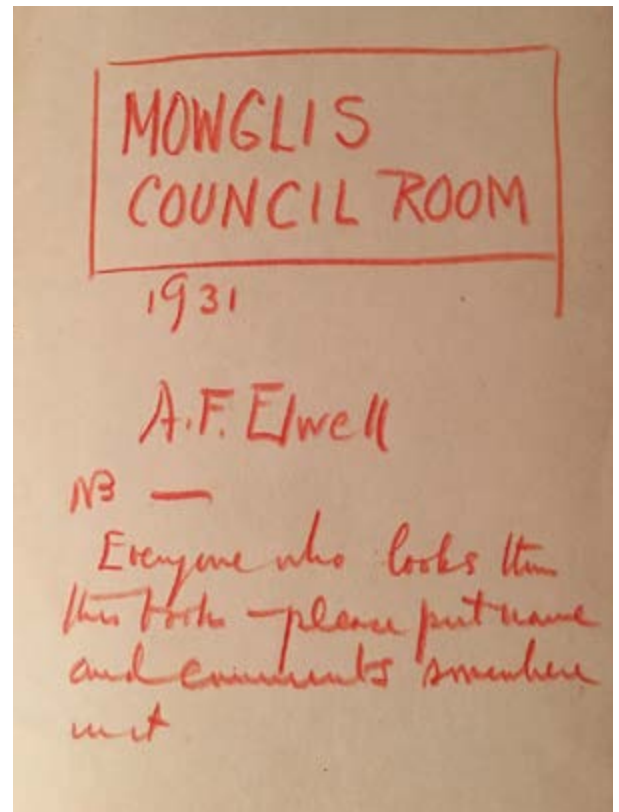 MOWGLIS
COUNCIL ROOM
1931
A.F. Elwell
NB —
Everyone who looks thru
this book – please put name
and comments somewhere
in it